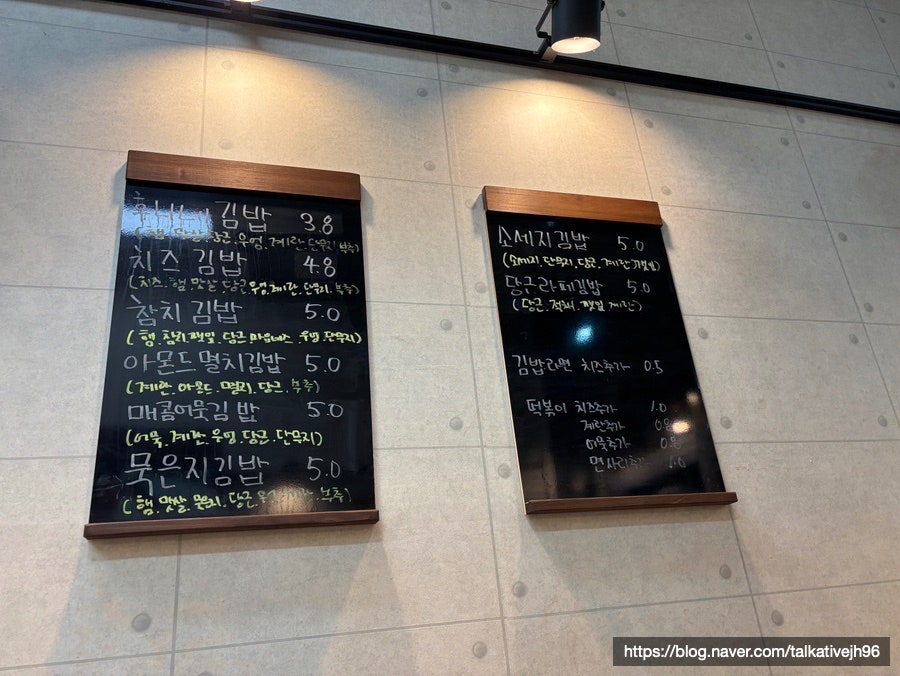 김밥 3.8
(햄.맛살.당근.우엉.계란.단무지.부추)
치즈 김밥 4.8
(치즈.햄.맛살.당근.우엉.계란.단무지.부추)
참치 김밥 5.0
(햄.참치.깻잎.당근.마요네즈.우엉.단무지)
아몬드멸치김밥 5.0
(계란.아몬드.멸치.당근.부추)
매콤어묵김밥 5.0
(어묵.계란.우엉.당근.단무지)
묵은지김밥 5.0
(햄.맛살.묵은지.당근.우엉.계란.부추)
소세지김밥 5.0
(소세지.단무지.당근.계란.깻잎)
당근라페김밥 5.0
(당근.적채.깻잎.계란)
김밥라면 치즈추가 0.5
떡볶이 치즈추가 1.0
계란추가
어묵추가
면사리추가 1.0
https://blog.naver.com/talkativejh96